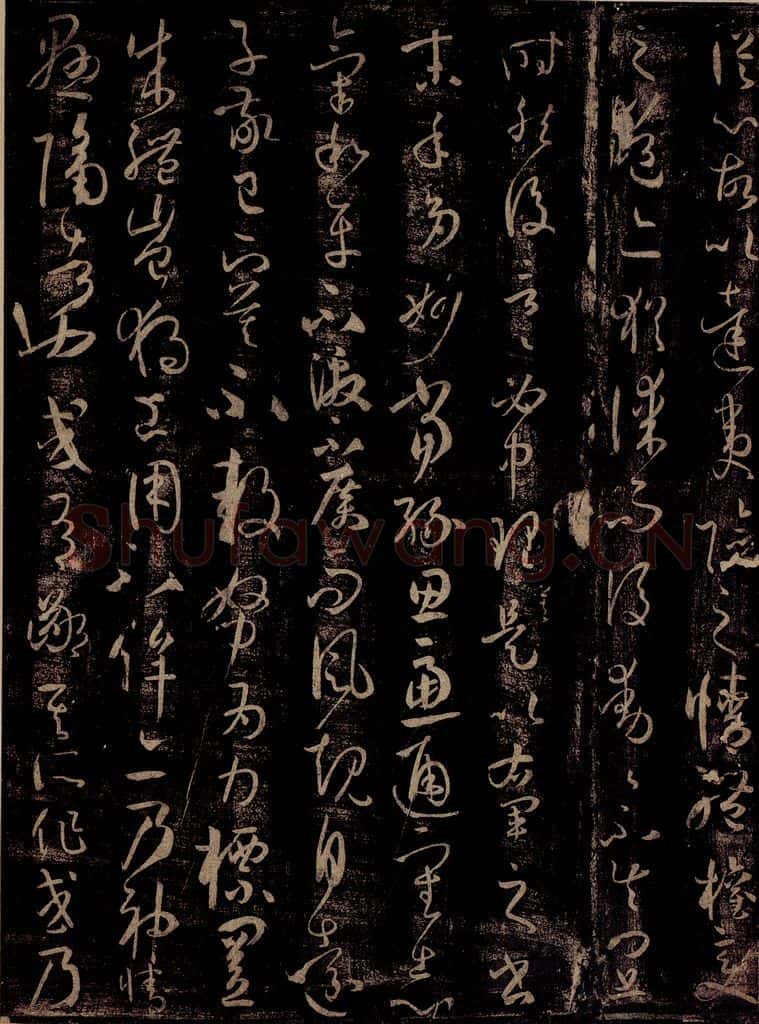 從心故以達夷險之情體權變
之道亦猶謀而後動〻不失宜
時然後言〻必中理矣是以右軍之書
末年多妙當緣思慮通審志
氣和平不激不厲而風規自遠
子敬已下莫不鼓努為力標置
成體豈獨工用不侔亦乃神情
懸隔者也或有鄙其所作或乃
Shufawang.CN